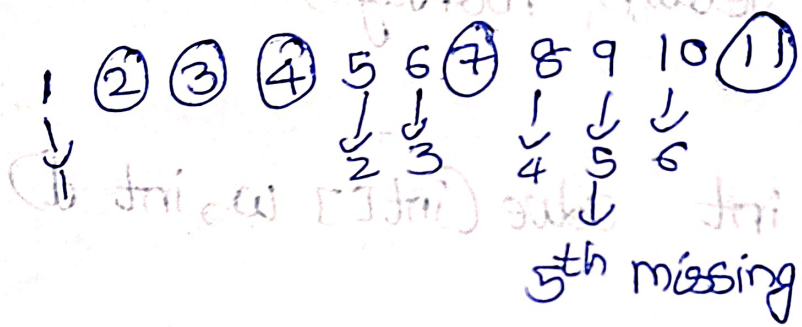 1 2 3 4 5 6 7 8 9 10 11
1 2 3 4 5 6
5th missing